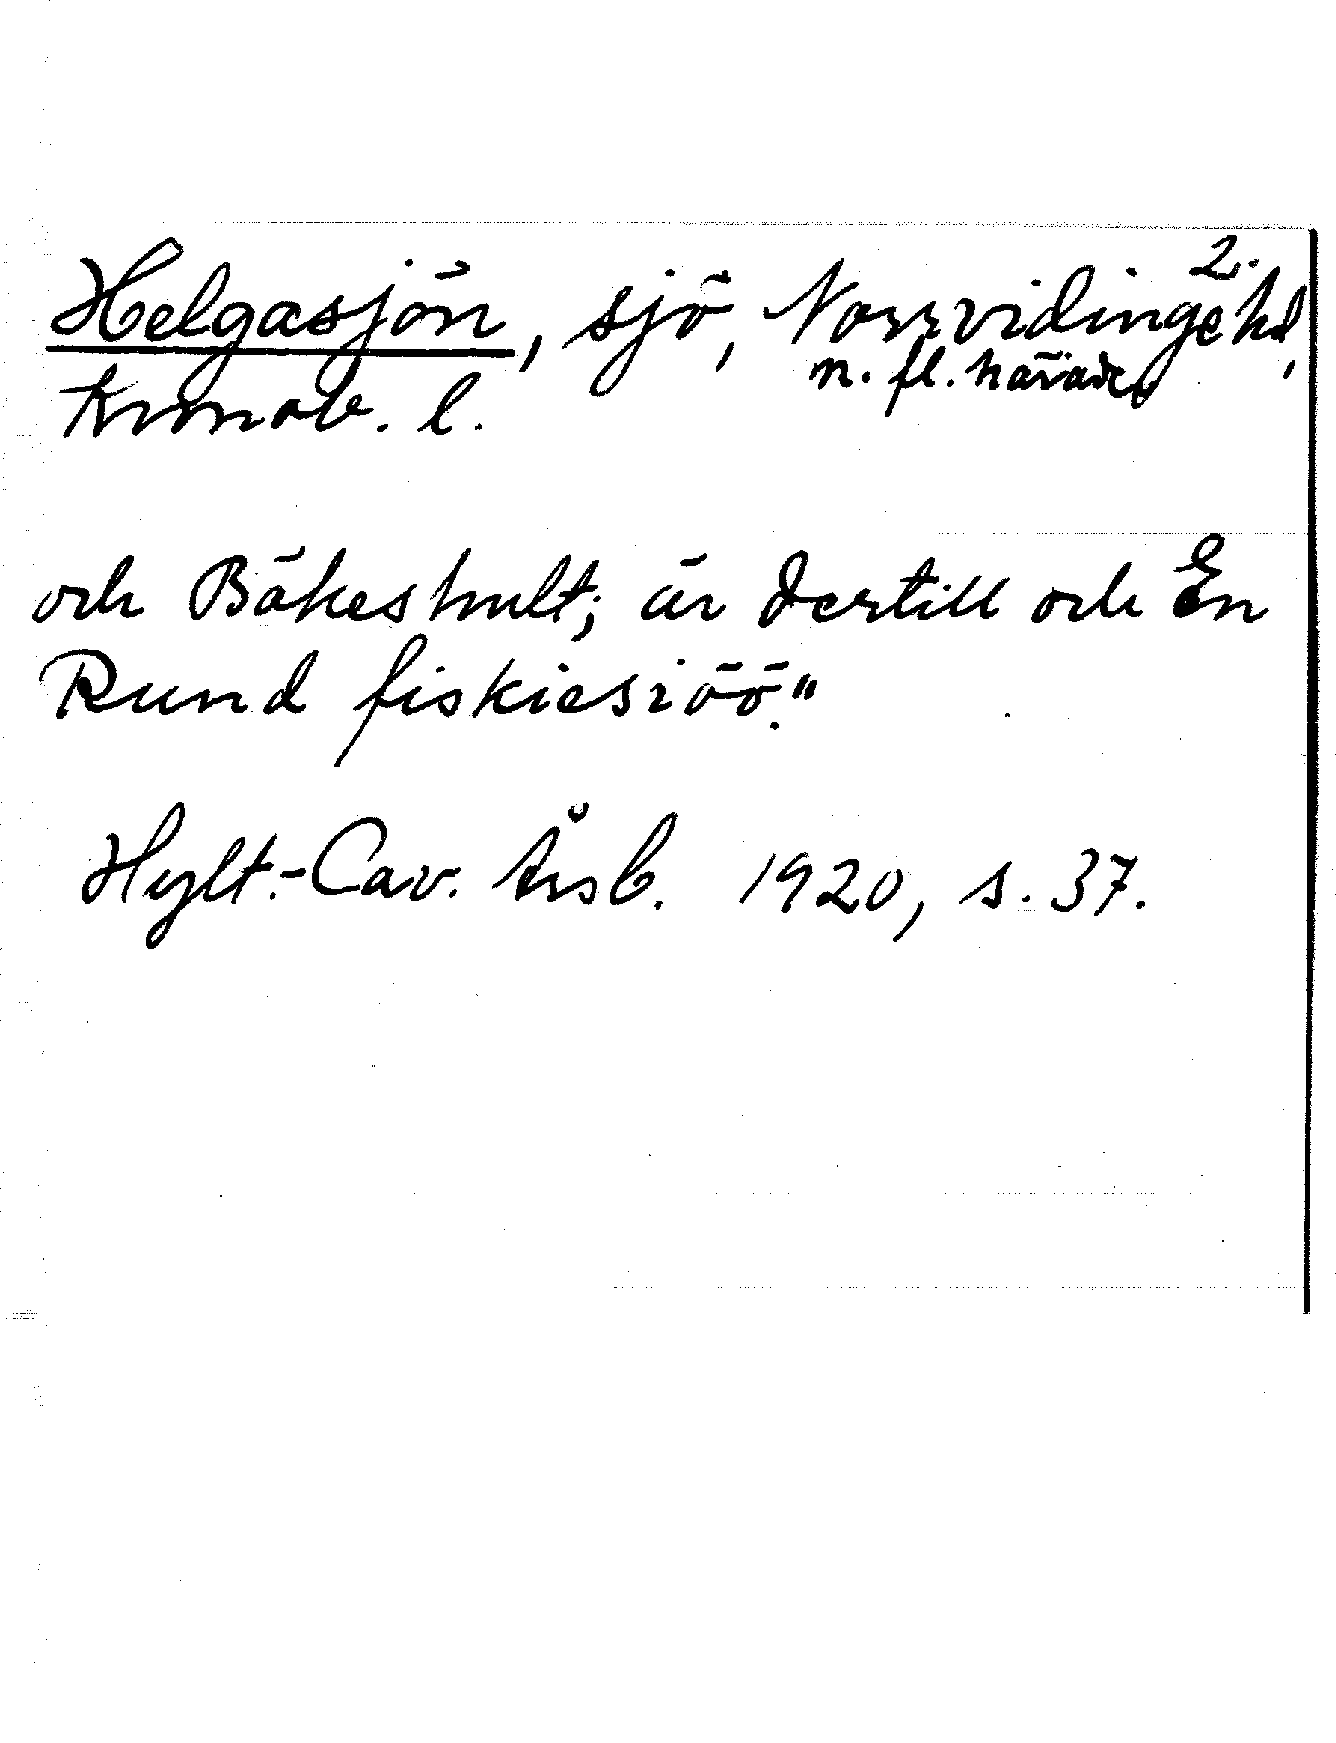 2.
Helgasjön, sjö, Norrvidinge hd,
n. fl. härader
Kronob. l.
och Bäkeshult; är dertill och En
Rund fiskiesiöö."
Hylt.-Cav. Årsb. 1920, s. 37.